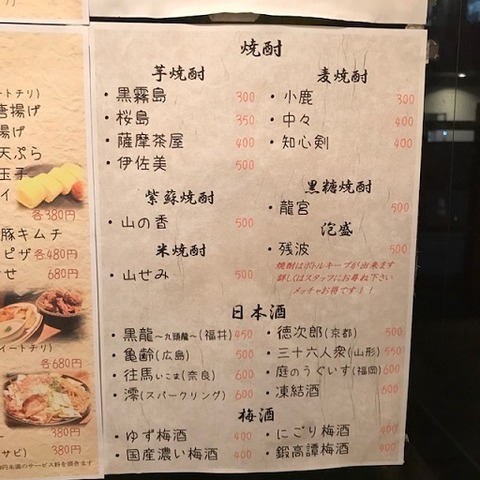 ートチリ)
唐揚げ
揚げ
天ぷら
玉子
イ
各380円
豚キムチ
ピザ 各480円
せ 680円
イートチリ)
各680円
380円
サビ) 380円
円未満のサービス料を頂きます
焼酎
芋焼酎
・黒霧島 300
・桜島 350
・薩摩茶屋 400
・伊佐美 500
紫蘇焼酎
・山の香 500
米焼酎
・山せみ 500
麦焼酎
・小鹿 300
・中々 400
・知心剣 400
黒糖焼酎
・龍宮 500
泡盛
・残波 500
焼酎はボトルキープが出来ます
詳しくはスタッフにお尋ね下さい
メッチャお得です!!
日本酒
・黒龍〜九頭龍〜(福井) 450
・亀齢(広島) 500
・往馬いこま(奈良) 600
・澪(スパークリング) 600
・徳次郎(京都) 500
・三十六人衆(山形) 550
・庭のうぐいす(福岡) 600
・凍結酒 600
梅酒
・ゆず梅酒 400
・国産濃い梅酒 400
・にごり梅酒 400
・鍛高譚梅酒 400